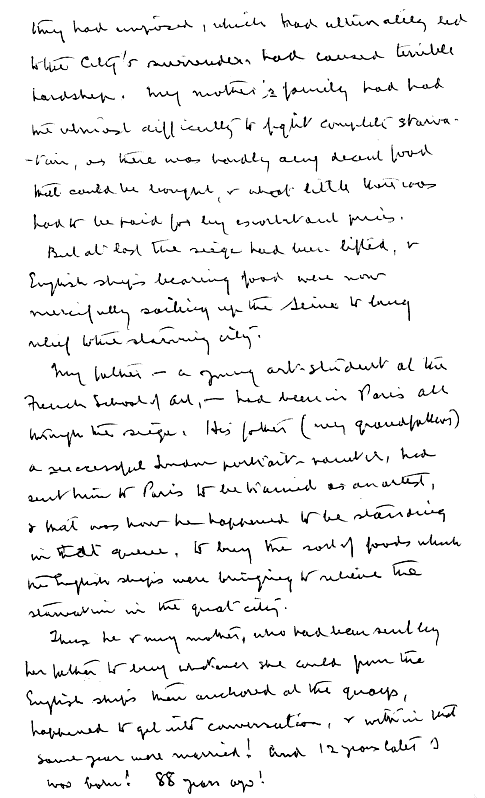 they had imposed, which had ultimately led
to the City's surrender, had caused terrible
hardship. My mother's family had had
the utmost difficulty to fight complete starva-
-tion, as there was hardly any decent food
that could be bought, & what little there was
had to be paid for by exorbitant prices.
But at last the siege had been lifted, &
English ships bearing food were now
mercifully sailing up the Seine to bring
relief to the starving city.
My father — a young art-student at the
French School of Art, — had been in Paris all
through the siege. His father (my grandfather)
a successful London portrait-painter, had
sent him to Paris to be trained as an artist,
& that was how he happened to be standing
in that queue, to buy the sort of foods which
the English ships were bringing to relieve the
starvation in the great city.
Thus he & my mother, who had been sent by
her father to buy whatever she could from the
English ships then anchored at the quays,
happened to get into conversation, & within that
same year were married! And 12 years later I
was born! 88 years ago!